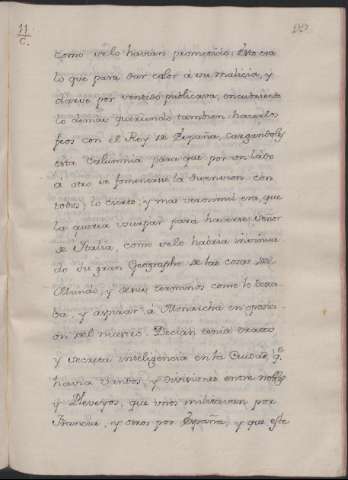 11
C.
como se lo havian prometido: Esto era
lo que para dar calor á su malicia, y
darse por sentido publicava, encubriendo
lo demas queriendo tambien hacerlos
feos con el Rey de España, cargandoles
esta calumnia para que por un lado
ó otro se fomentase la diversion con
todos; lo cierto, y mas verosimil era, que
la queria usurpar para hacerse Señor
de Italia, como se lo habria
do su gran Geographo de las cosas del
Mundo, y de sus terminos como lo desea-
ba, y aspirar á Monarchia en oposici-
on del nuestro. Decian tenia tratos
y secreta inteligencia en la Ciudad, q.e
havia Vandos, y divisiones entre nobles
y Pleveyos, que unos militavan por
Francia, y otros por España, y que este